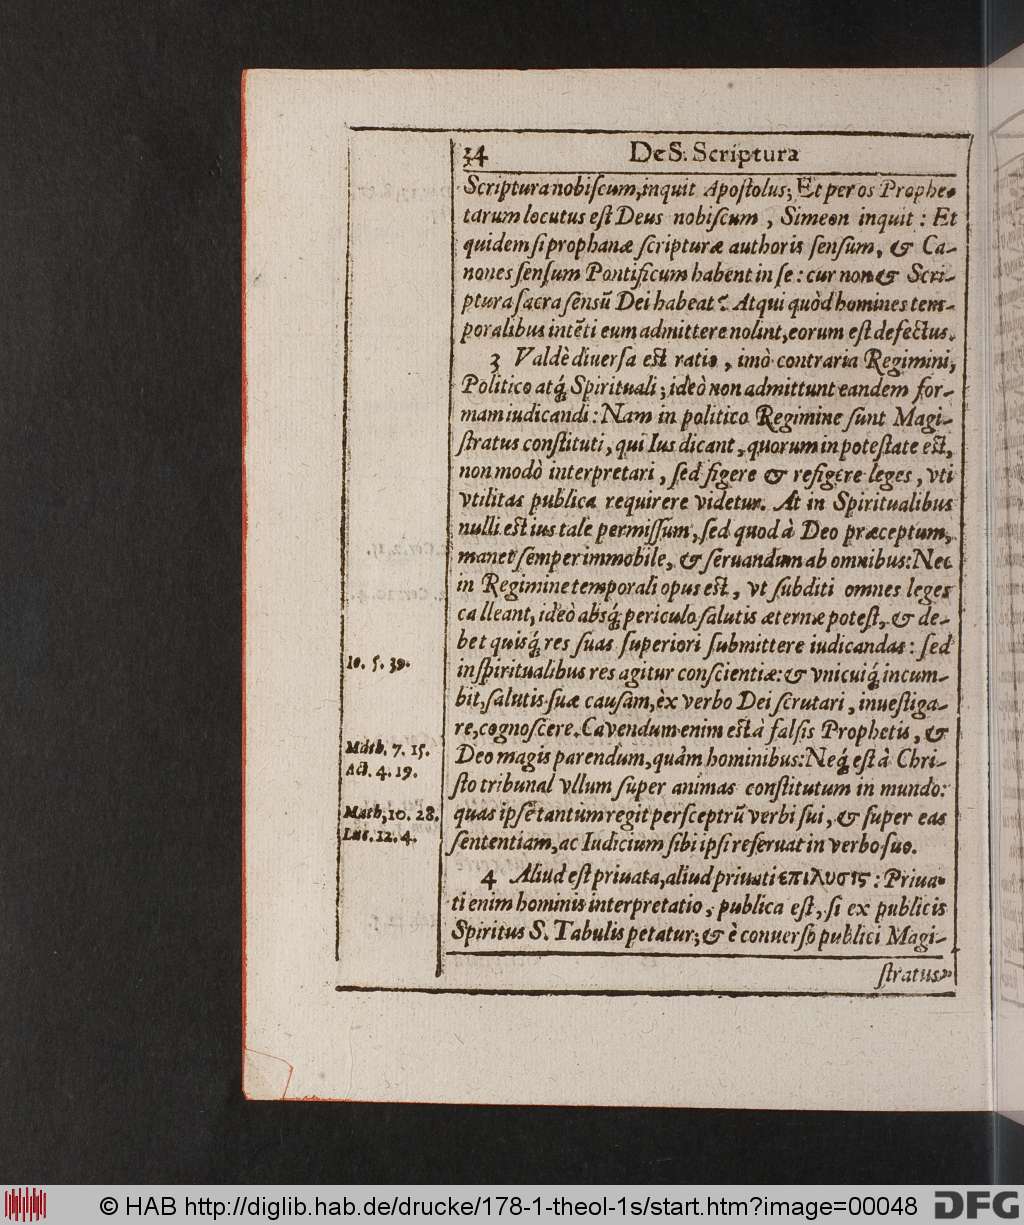 34 De S. Scriptura
Scriptura nobiſcum, inquit Apoſtolus; Et per os Prophe-
tarum locutus eſt Deus nobiſcum, Simeon inquit: Et
quidem ſi prophanæ ſcripturæ authoris ſenſum, & Ca-
nones ſenſum Pontificum habent in ſe: cur non & Scri-
ptura ſacra ſenſũ Dei habeat? Atqui quòd homines tem-
poralibus intẽti eum admittere nolint, eorum eſt defectus.
3 Valdè diuerſa eſt ratio, imò contraria Regimini,
Politico atq́; Spirituali; ideò non admittunt eandem for-
mam iudicandi: Nam in politico Regimine ſunt Magi-
ſtratus conſtituti, qui Ius dicant, quorum in poteſtate eſt,
non modò interpretari, ſed figere & refigere leges, vti
vtilitas publica requirere videtur. At in Spiritualibus
nulli eſt ius tale permiſſum, ſed quod à Deo præceptum,
manet ſemper immobile, & ſeruandum ab omnibus: Nec
in Regimine temporali opus eſt, vt ſubditi omnes leges
calleant, ideò abſq́; periculo ſalutis æternæ poteſt, & de-
bet quisq́; res ſuas ſuperiori ſubmittere iudicandas: ſed
in ſpiritualibus res agitur conſcientiæ: & vnicuiq́; incum-
bit, ſalutis ſuæ cauſam, èx verbo Dei ſcrutari, inueſtiga-
re, cognoſcere. Cavendum enim eſt à falſis Prophetis, &
Deo magis parendum, quàm hominibus: Neq́; eſt à Chri-
ſto tribunal vllum ſuper animas conſtitutum in mundo:
quas ipſe tantum regit per ſceptrũ verbi ſui, & ſuper eas
ſententiam, ac Iudicium ſibi ipſi reſeruat in verbo ſuo.
4 Aliud eſt priuata, aliud priuati επιλυσις: Priua-
ti enim hominis interpretatio, publica eſt, ſi ex publicis
Spiritus S. Tabulis petatur; & è conuerſo publici Magi-
ſtratus
Io. 5. 39.
Math. 7. 15.
Act. 4. 19.
Math, 10. 28.
Luc. 12. 4.
© HAB http://diglib.hab.de/drucke/178-1-theol-1s/start.htm?image=00048
DFG